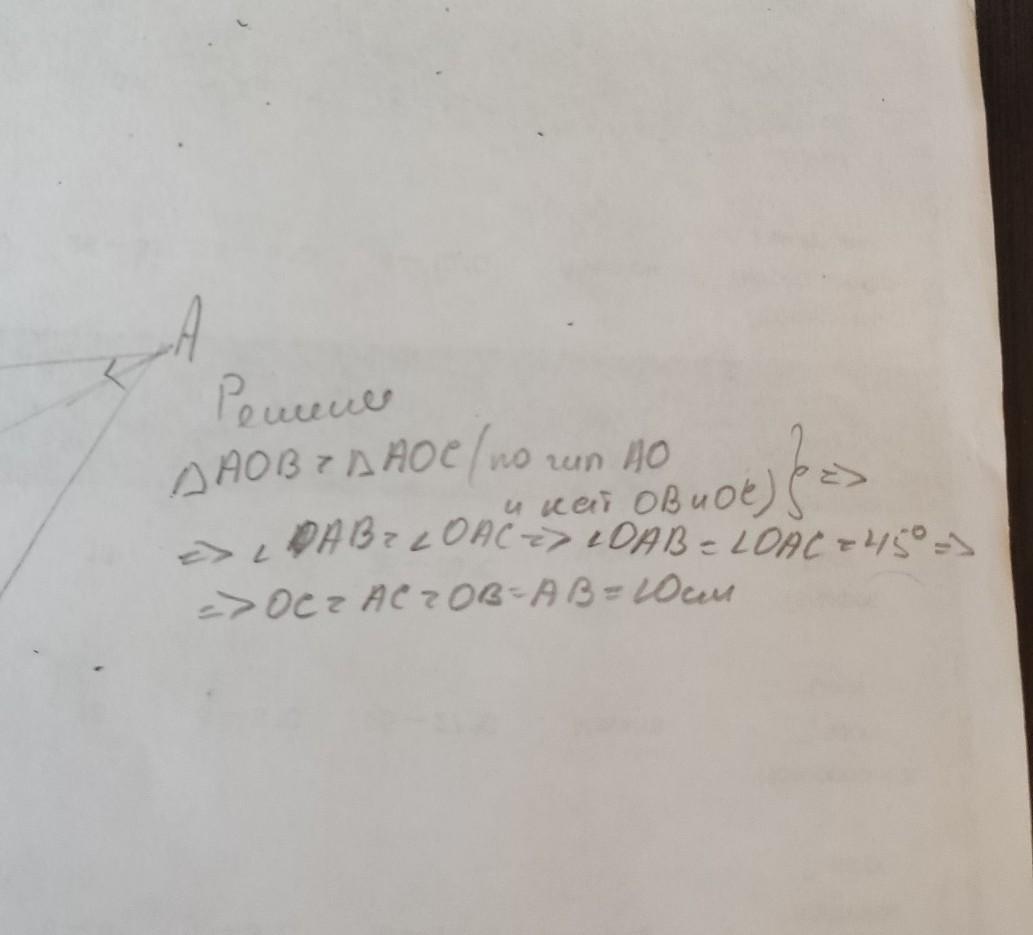 A
Решение
△AOB = △AOC (по гип AO
и кат OB и OC) } =>
=> ∠OAB = ∠OAC => ∠OAB = ∠OAC = 45° =>
=> OC = AC = OB = AB = 10см